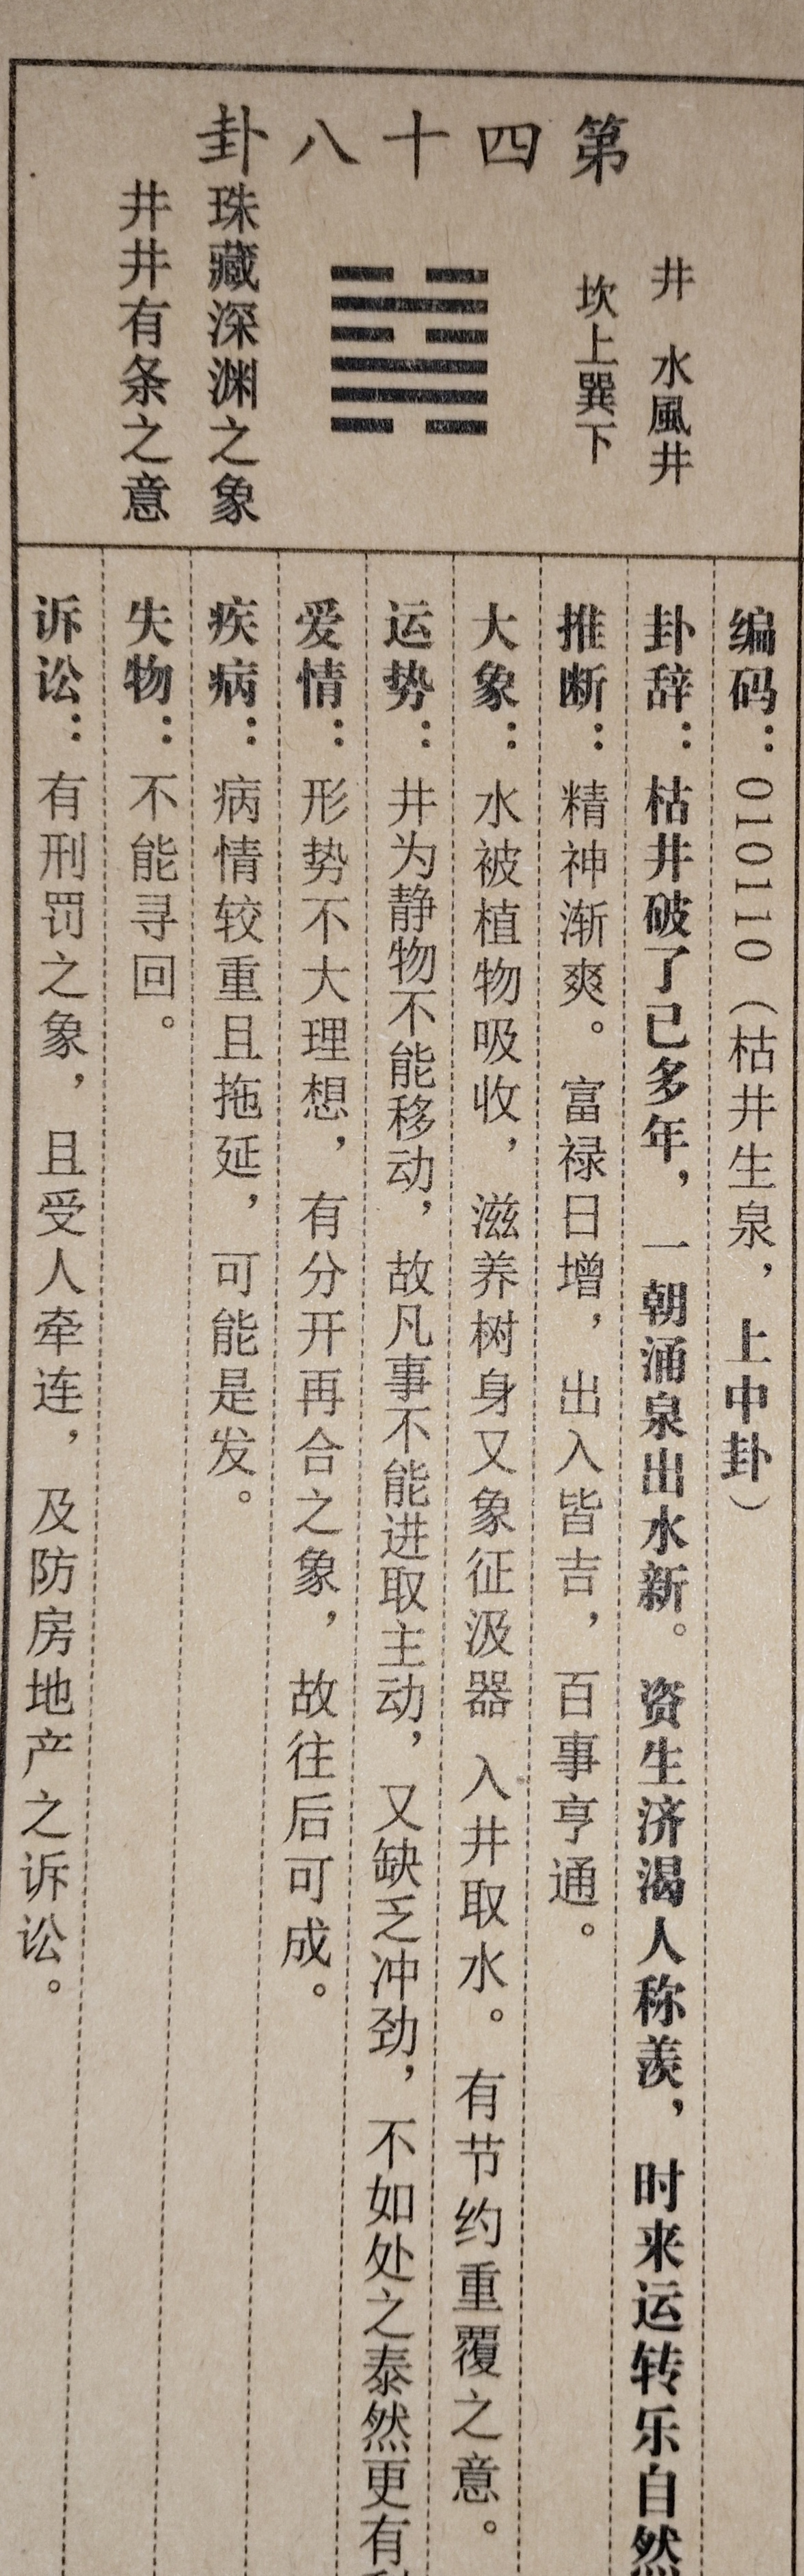 第四十八卦
井　水風井
坎上巽下
珠藏深渊之象
井井有条之意
编码：010110（枯井生泉，上中卦）
卦辞：枯井破了已多年，一朝涌泉出水新。资生济渴人称羡，时来运转乐自然
推断：精神渐爽。富禄日增，出入皆吉，百事亨通。
大象：水被植物吸收，滋养树身又象征汲器　入井取水。有节约重覆之意。
运势：井为静物不能移动，故凡事不能进取主动，又缺乏冲劲，不如处之泰然更有
爱情：形势不大理想，有分开再合之象，故往后可成。
疾病：病情较重且拖延，可能是发。
失物：不能寻回。
诉讼：有刑罚之象，且受人牵连，及防房地产之诉讼。